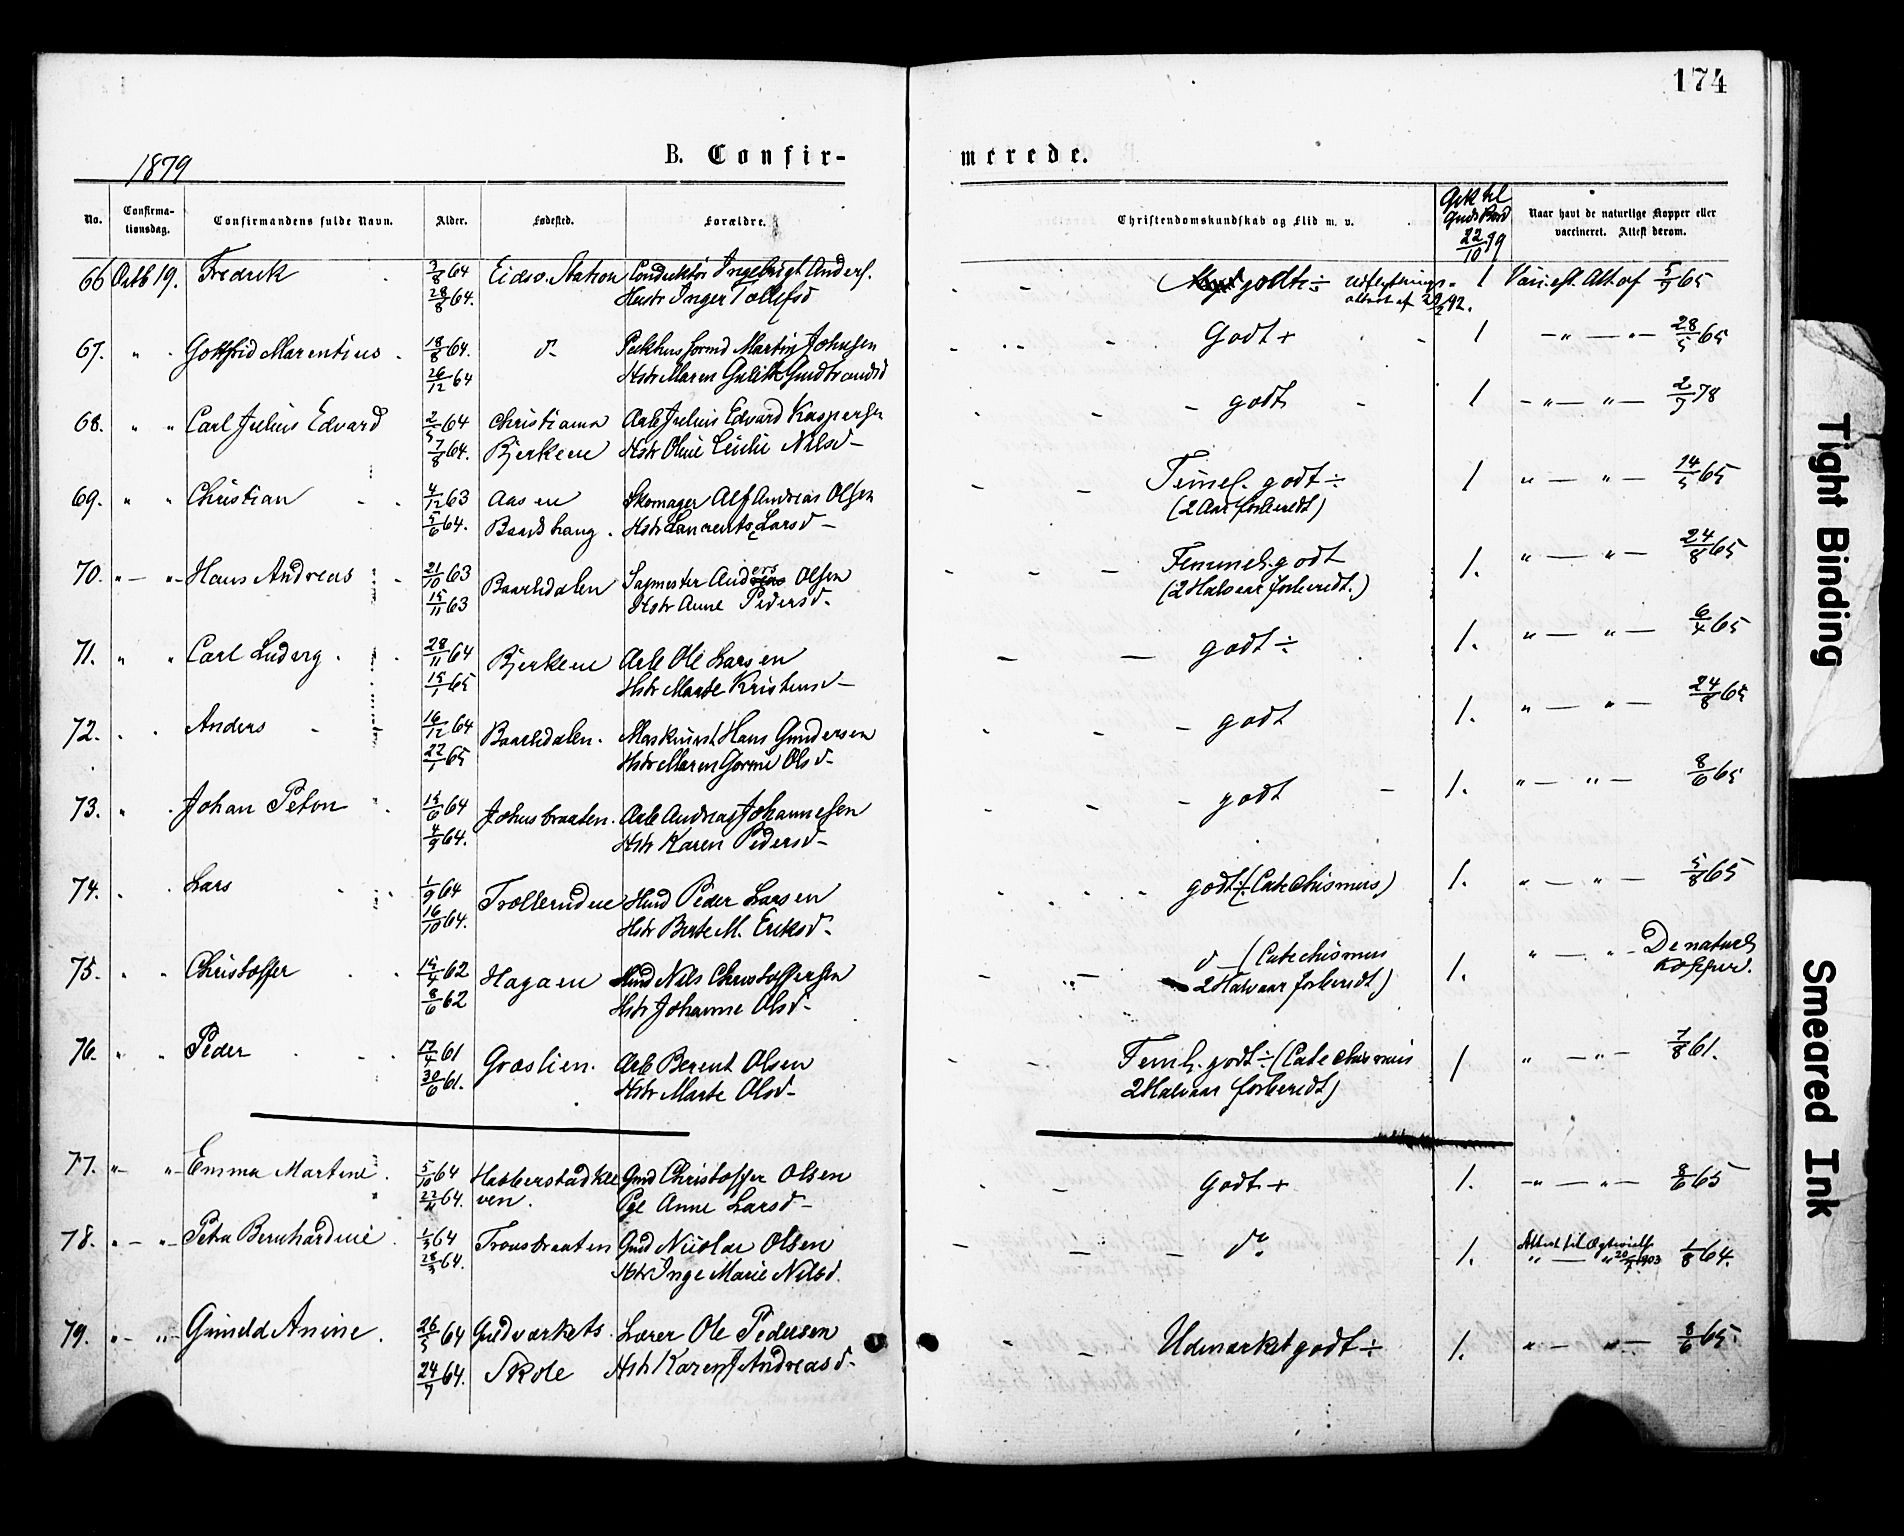 174
1879
B. Confir-
merede.
No.
Confirma-
tionsdag.
Confirmandens fulde Navn.
Alder.
Fødested.
Forældre.
Christendomskundskab og Flid m. v.
Gik til
Guds Bord
22/10 79
Naar havt de naturlige Kopper eller
vaccineret. Attest derom.
66 Octb 19. Fredrik 3/8 64 Eidsv. Station Conduktör Ingebrigt Anders. godt ÷ Udflytnings- 1 Vacc. eft. Att. af 5/9 65
28/8 64. Hustr Inger Tollefsd attest af
67. " Gottfrid Marentius 18/8 64. d- Pakhusformd Martin Johnsen Godt + 1 -"- -"- 28/5 65
26/12 64 Hstr Maren Gudbrandsd
68. " " Carl Julius Edvard 2/5 64 Christiania Arb Julius Edvard Kaspersen godt 1 -"- "- 2/7 78
7/8 64. Bjerkene Hstr Oline Nilsd-
69. " " Christian 4/12 63 Aasen Skomager Alf Andreas Olsen Temel. godt ÷ 1 "- "- 14/5 65
5/6 64. Baardshaug. Hstr Larsd- (2 Aar forberedt)
70. "- "- Hans Andreas 21/10 63 Baardsdalen Sagmester Anders Olsen Temmel. godt 1. "- "- 24/8 65
15/11 63 Hstr Anne Pedersd. (2 Halvaar forberedt.)
71. " " Carl Ludvig. 28/11 64 Bjerkene Arb Ole Larsen godt ÷ 1. "- "- 6/4 65
15/1 65 Hstr Marte Kristensd-
72. Anders 16/12 64 Baardsdalen. Maskinist Hans Gundersen godt 1. "- "- 24/8 65
22/1 65 Hstr Maren Olsd-
73. " Johan Peton 15/6 64 Johnsbraaten. Arb Andreas Johannesen godt 1. "- "- 8/6 65
4/9 64. Hstr Karen Pedersd-
74. Lars 1/9 64 Trøllerudene Hmd Peder Larsen godt ÷ (Catechismus) 1. "- "- 5/8 65
16/10 64. Hstr Berte M. Eriksd-
75. Christoffer 15/4 62 Hagaen Hmd Nils Christoffersen d- (Catechismus 1. "- "- De naturl.
8/6 62 Hstr Johanne Olsd- 2 Halvaar forberedt) Kopper.
76. " " Peder 17/4 61 Græslien. Arb Berent Olsen Teml. godt ÷ (Catechismus 1 " -"- 7/8 61.
30/6 61. Hstr Marte Olsd- 2 Halvaar forberedt)
77. "- "- Emma Martine 5/10 64 Habberstadkle Gmd Christoffer Olsen Godt + 1. -"- -"- 8/6 65
64. ven. Pge Anne Larsd-
78. "- "- Petra Bernhardine 1/3 64 Tronsbraaten Gmd Nicolai Olsen do 1. Attest til Ægtevielse 1/8 64.
28/3 64. Hstr Inge Marie Nilsd. 1903
79. "- "- Gunild Anine. 26/5 64 Guldverkets Lærer Ole Pedersen Udmærket godt ÷ 1. "- "- 8/6 65
24/7 64. Skole Hstr Karen J Andreasd-
Tight Binding
Smeared Ink